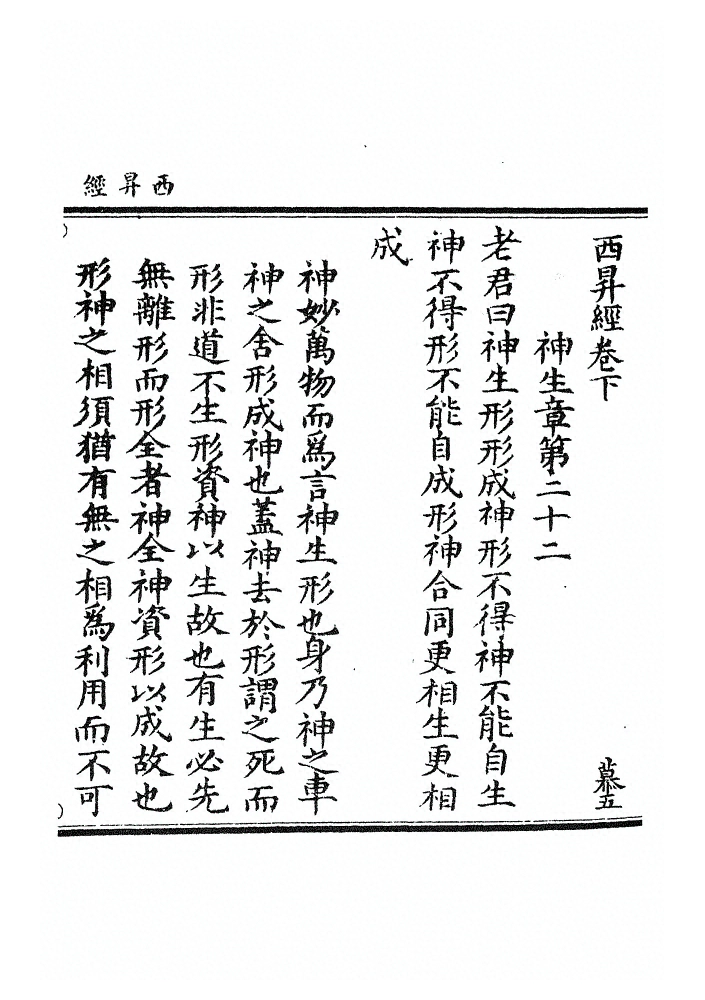 西昇經
西昇經卷下 慕五
神生章第二十二
老君曰神生形形成神形不得神不能自生
神不得形不能自成形神合同更相生更相
成
神妙萬物而為言神生形也身乃神之車
神之舍形成神也蓋神去於形謂之死而
形非道不生形資神以生故也有生必先
無離形而形全者神全神資形以成故也
形神之相須猶有無之相為利用而不可